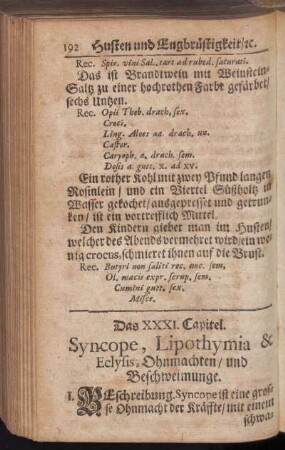 192 Husten und Engbrüstigkeit/ꝛc.
Rec. Spir. vini Sal. tart ad rubed. saturati.
Das ist Brandtwein mit Weinstein-
Saltz zu einer hochrothen Farbe gefärbet/
sechs Untzen.
Rec. Opii Theb. drach. sex.
Croci.
Ling. Aloes aa. drach. un.
Castor.
Caryoph. a. drach. sem.
Dosis a gutt. x. ad xv.
Ein rother Kohl mit zwey Pfund langen
Rosinlein/ und ein Viertel Süßholtz in
Wasser gekochet/ ausgepresset und getrun-
cken/ ist ein vortrefflich Mittel.
Den Kindern giebet man im Husten/
welcher des Abends vermehret wird/ ein we-
nig crocus, schmieret ihnen auf die Brust.
Rec. Butyri non saliti rec. unc. sem.
Ol. macis expr. scrup. sem.
Cumini gutt. sex.
Misce.
Das XXXI. Capitel.
Syncope, Lipothymia &
Eclysis, Ohnmachten/ und
Beschweimunge.
I. BEschreibung. Syncope ist eine gros-
se Ohnmacht der Kräffte/ mit einem
schwa-